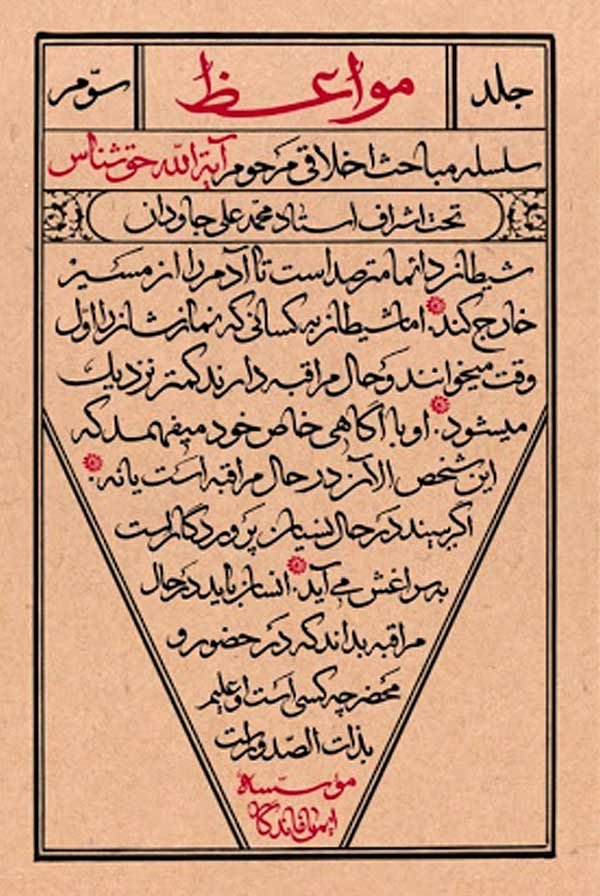 جلد
مواعظ
سوّم
سلسله مباحث اخلاقی مرحوم آیة الله حق شناس
تحت اشراف استاد محمد علی جاودان
شیطان دائما مترصد است تا آدم را از مسیر
خارج کند. اما شیطان به کسانی که نمازشان را اوّل
وقت میخوانند و حال مراقبه دارند کمتر نزدیک
میشود. او با آگاهی خاص خود میفهمد که
این شخص الآن در حال مراقبه است یا نه.
اگر ببیند در حال نسیان پروردگار است
به سراغش می آید. انسان باید در حال
مراقبه بداند که در حضور و
محضر چه کسی است او علیم
بذات الصدور است
مؤسسه
ایمان ماندگار